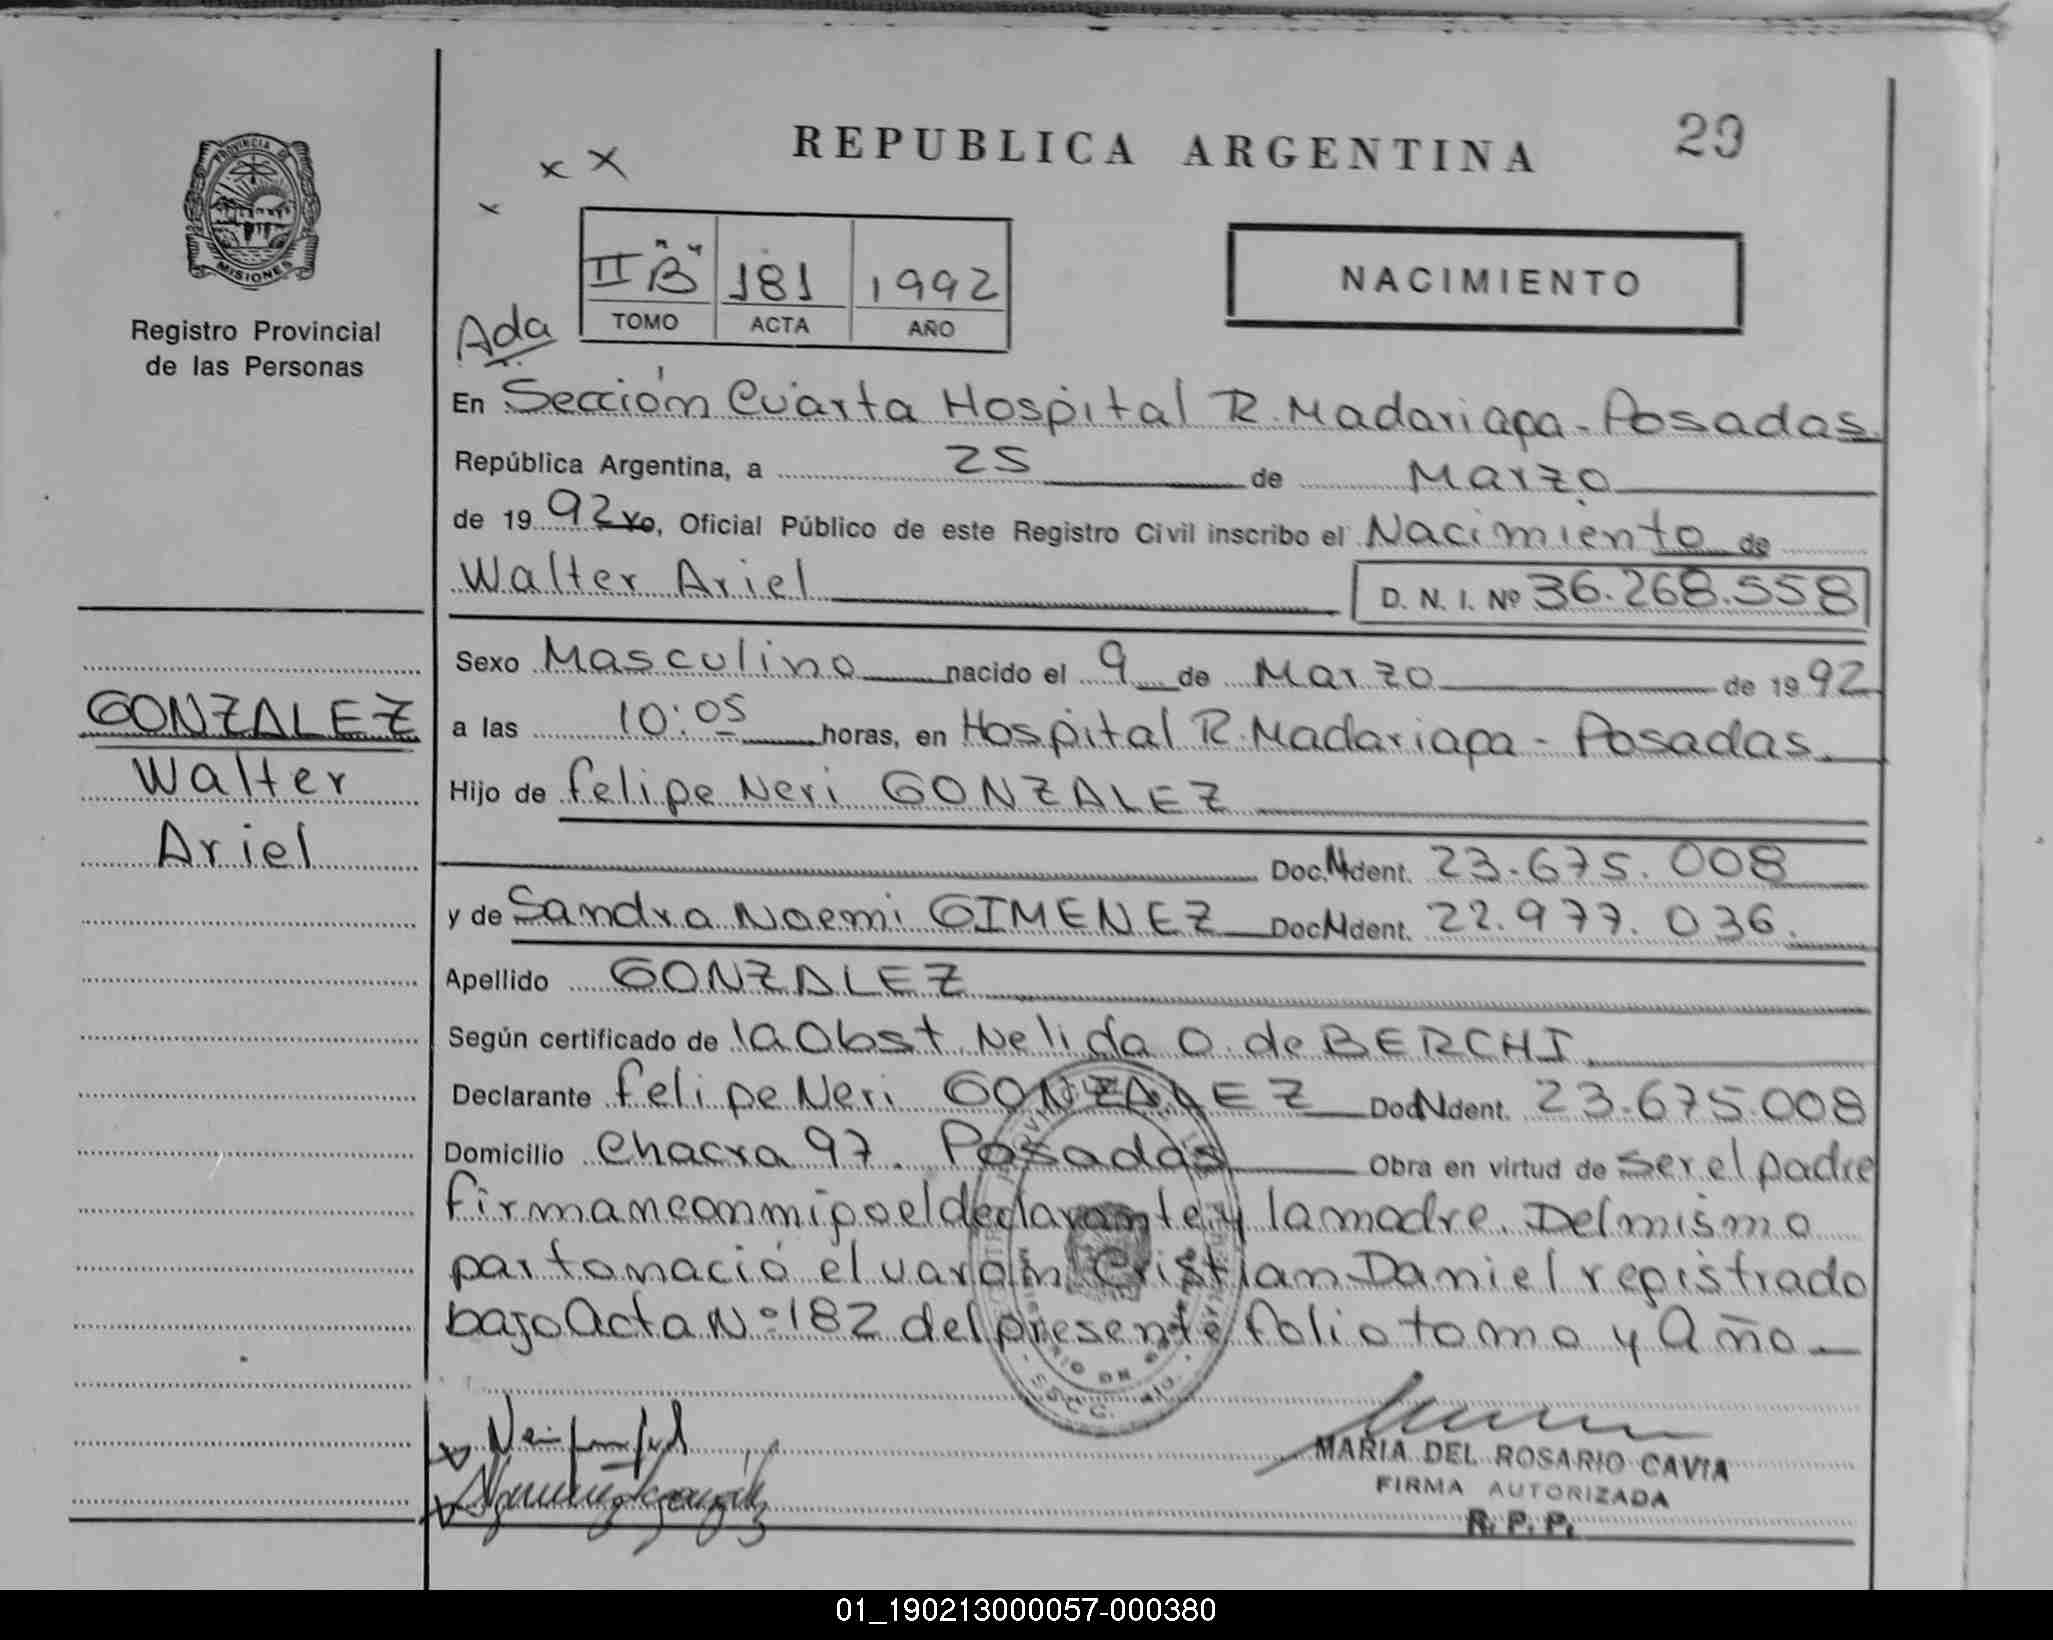 REPUBLICA ARGENTINA
29
PROVINCIA DE
MISIONES
Registro Provincial
de las Personas
x X
x
II "B" 181 1992
TOMO ACTA AÑO
NACIMIENTO
Ada
En Sección Cuarta Hospital R. Madariaga - Posadas.
República Argentina, a 25 de Marzo
de 1992 yo, Oficial Público de este Registro Civil inscribo el Nacimiento de
Walter Ariel D. N. I. Nº 36.268.558
Sexo Masculino nacido el 9 de Marzo de 1992
GONZALEZ
Walter
Ariel
a las 10:05 horas, en Hospital R. Madariaga - Posadas.
Hijo de Felipe Neri GONZALEZ
Doc. Ident. 23.675.008
y de Sandra Noemi GIMENEZ Doc Ident. 22.977.036.
Apellido GONZALEZ
Según certificado de la Obst. Nelida O. de BERCHI
Declarante Felipe Neri GONZALEZ Doc Ident. 23.675.008
Domicilio Chacra 97. Posadas Obra en virtud de ser el padre
firman conmigo el declarante y la madre. Del mismo
parto nació el varón Cristian Daniel registrado
bajo Acta Nº 182 del presente folio tomo y Año
MARIA DEL ROSARIO CAVIA
FIRMA AUTORIZADA
R. P. P.
01_190213000057-000380